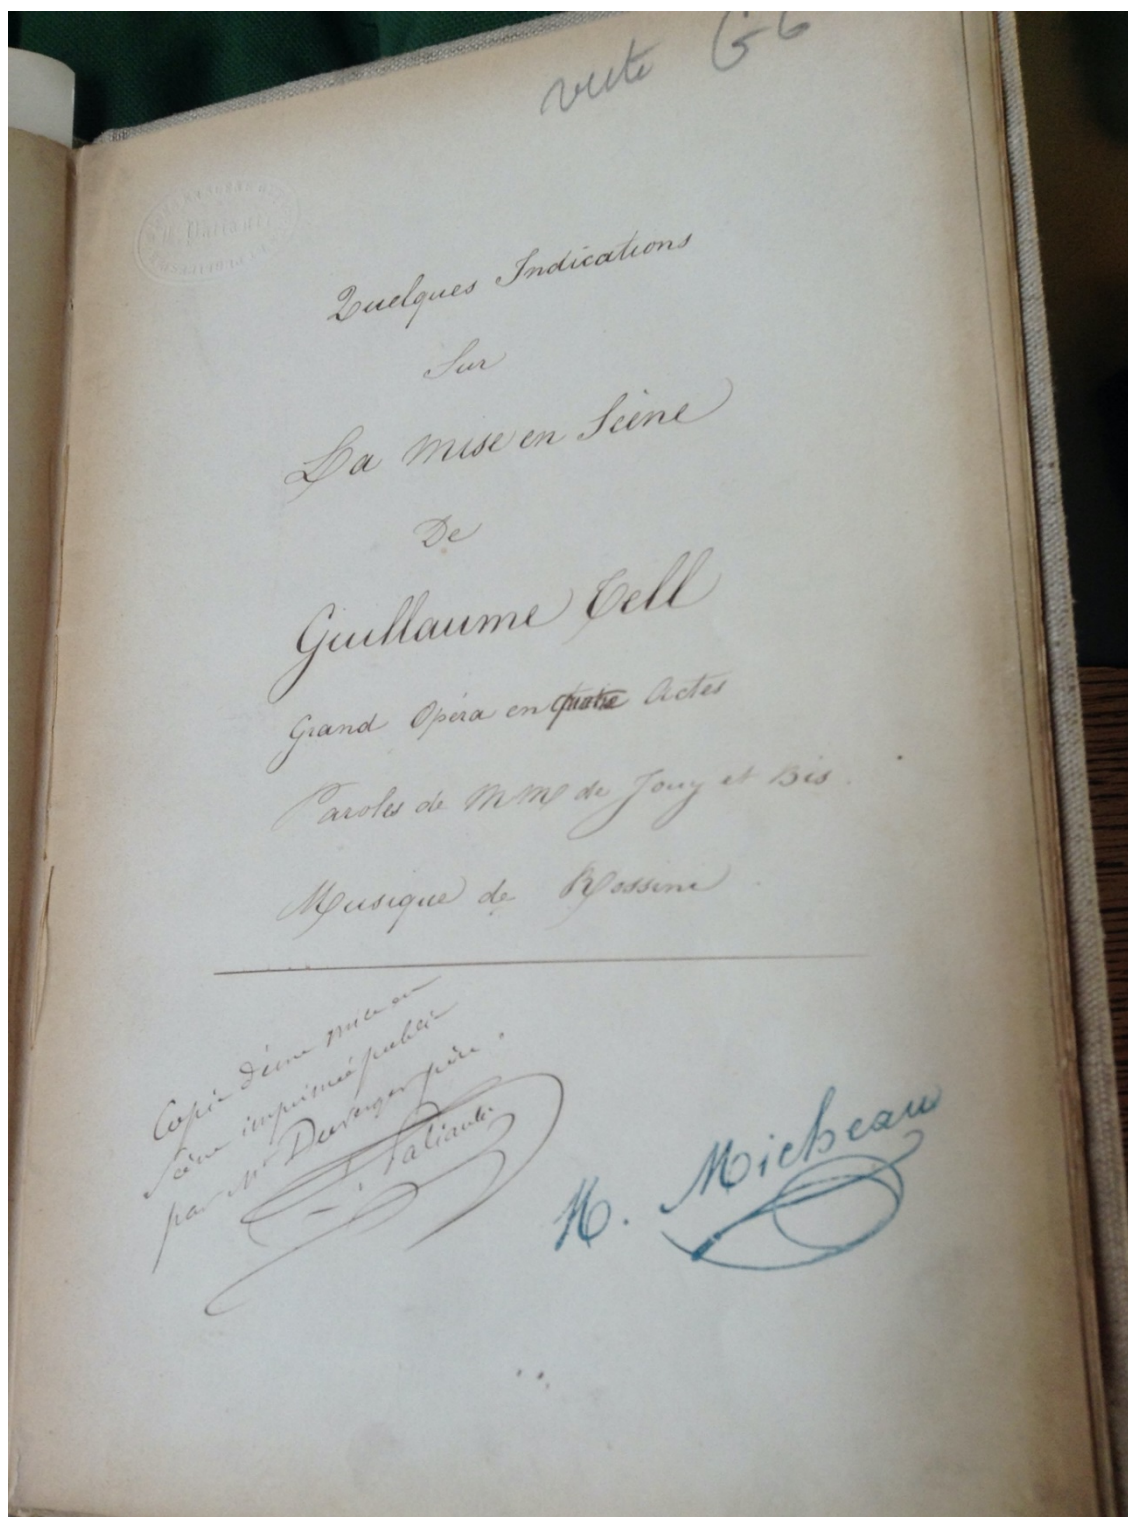 G6
Quelques Indications
Sur
La Mise en Scène
De
Guillaume Tell
Grand Opéra en quatre Actes
Paroles de MM de Jouy et Bis.
Musique de Rossini.
Copie d'une mise en
Scène imprimée publiée
par Mr Duverger père.
Palianti
M. Micheau